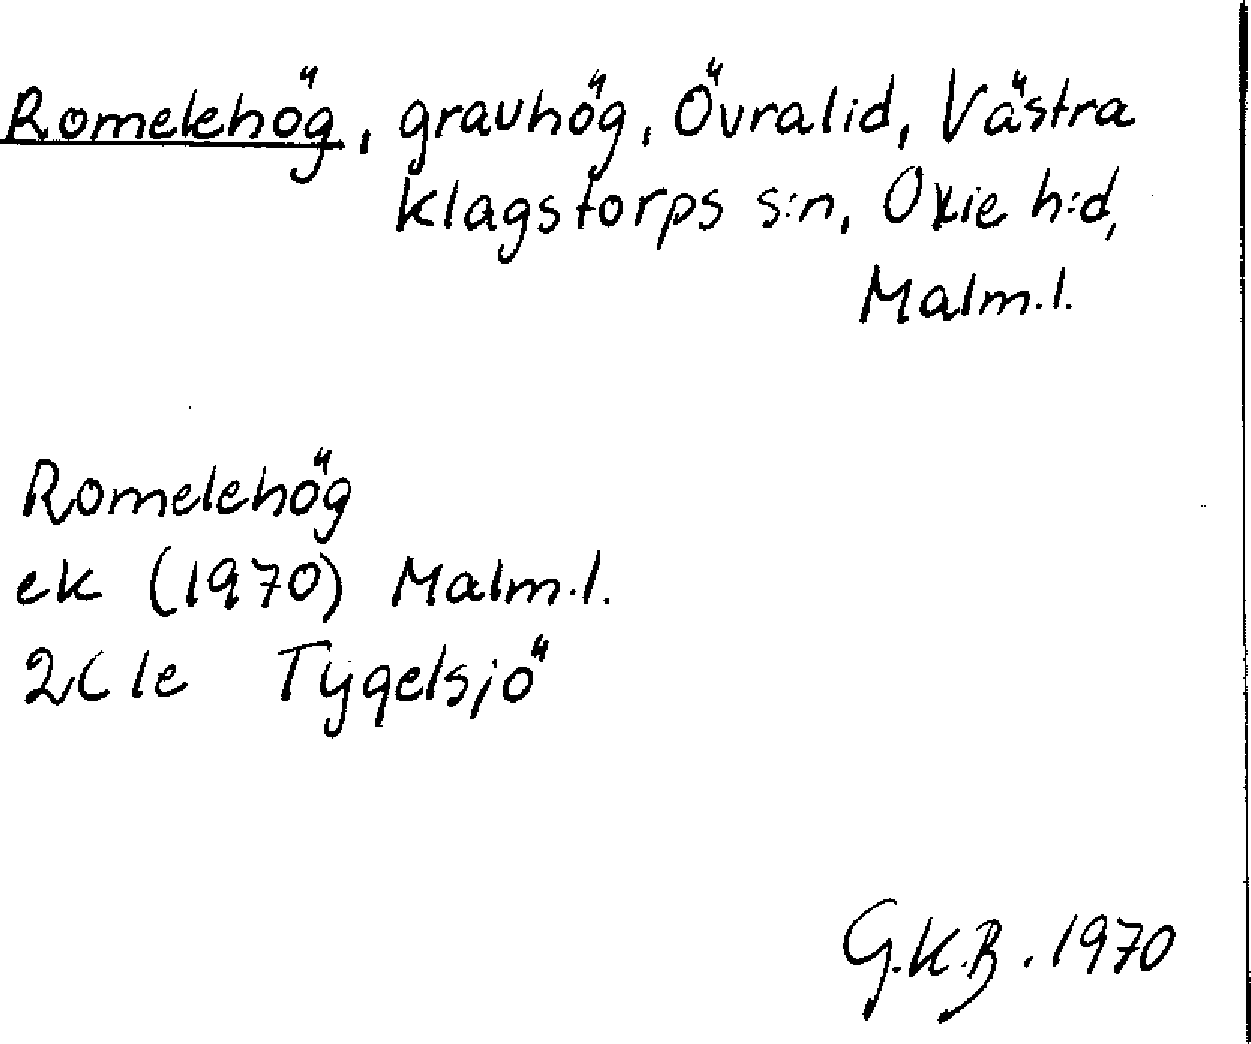 Romelehög, gravhög, Övralid, Västra
Klagstorps s:n, Oxie h:d,
Malm.l.
Romelehög
ek (1970) Malm.l.
2C 1e Tygelsjö
G.K.B. 1970